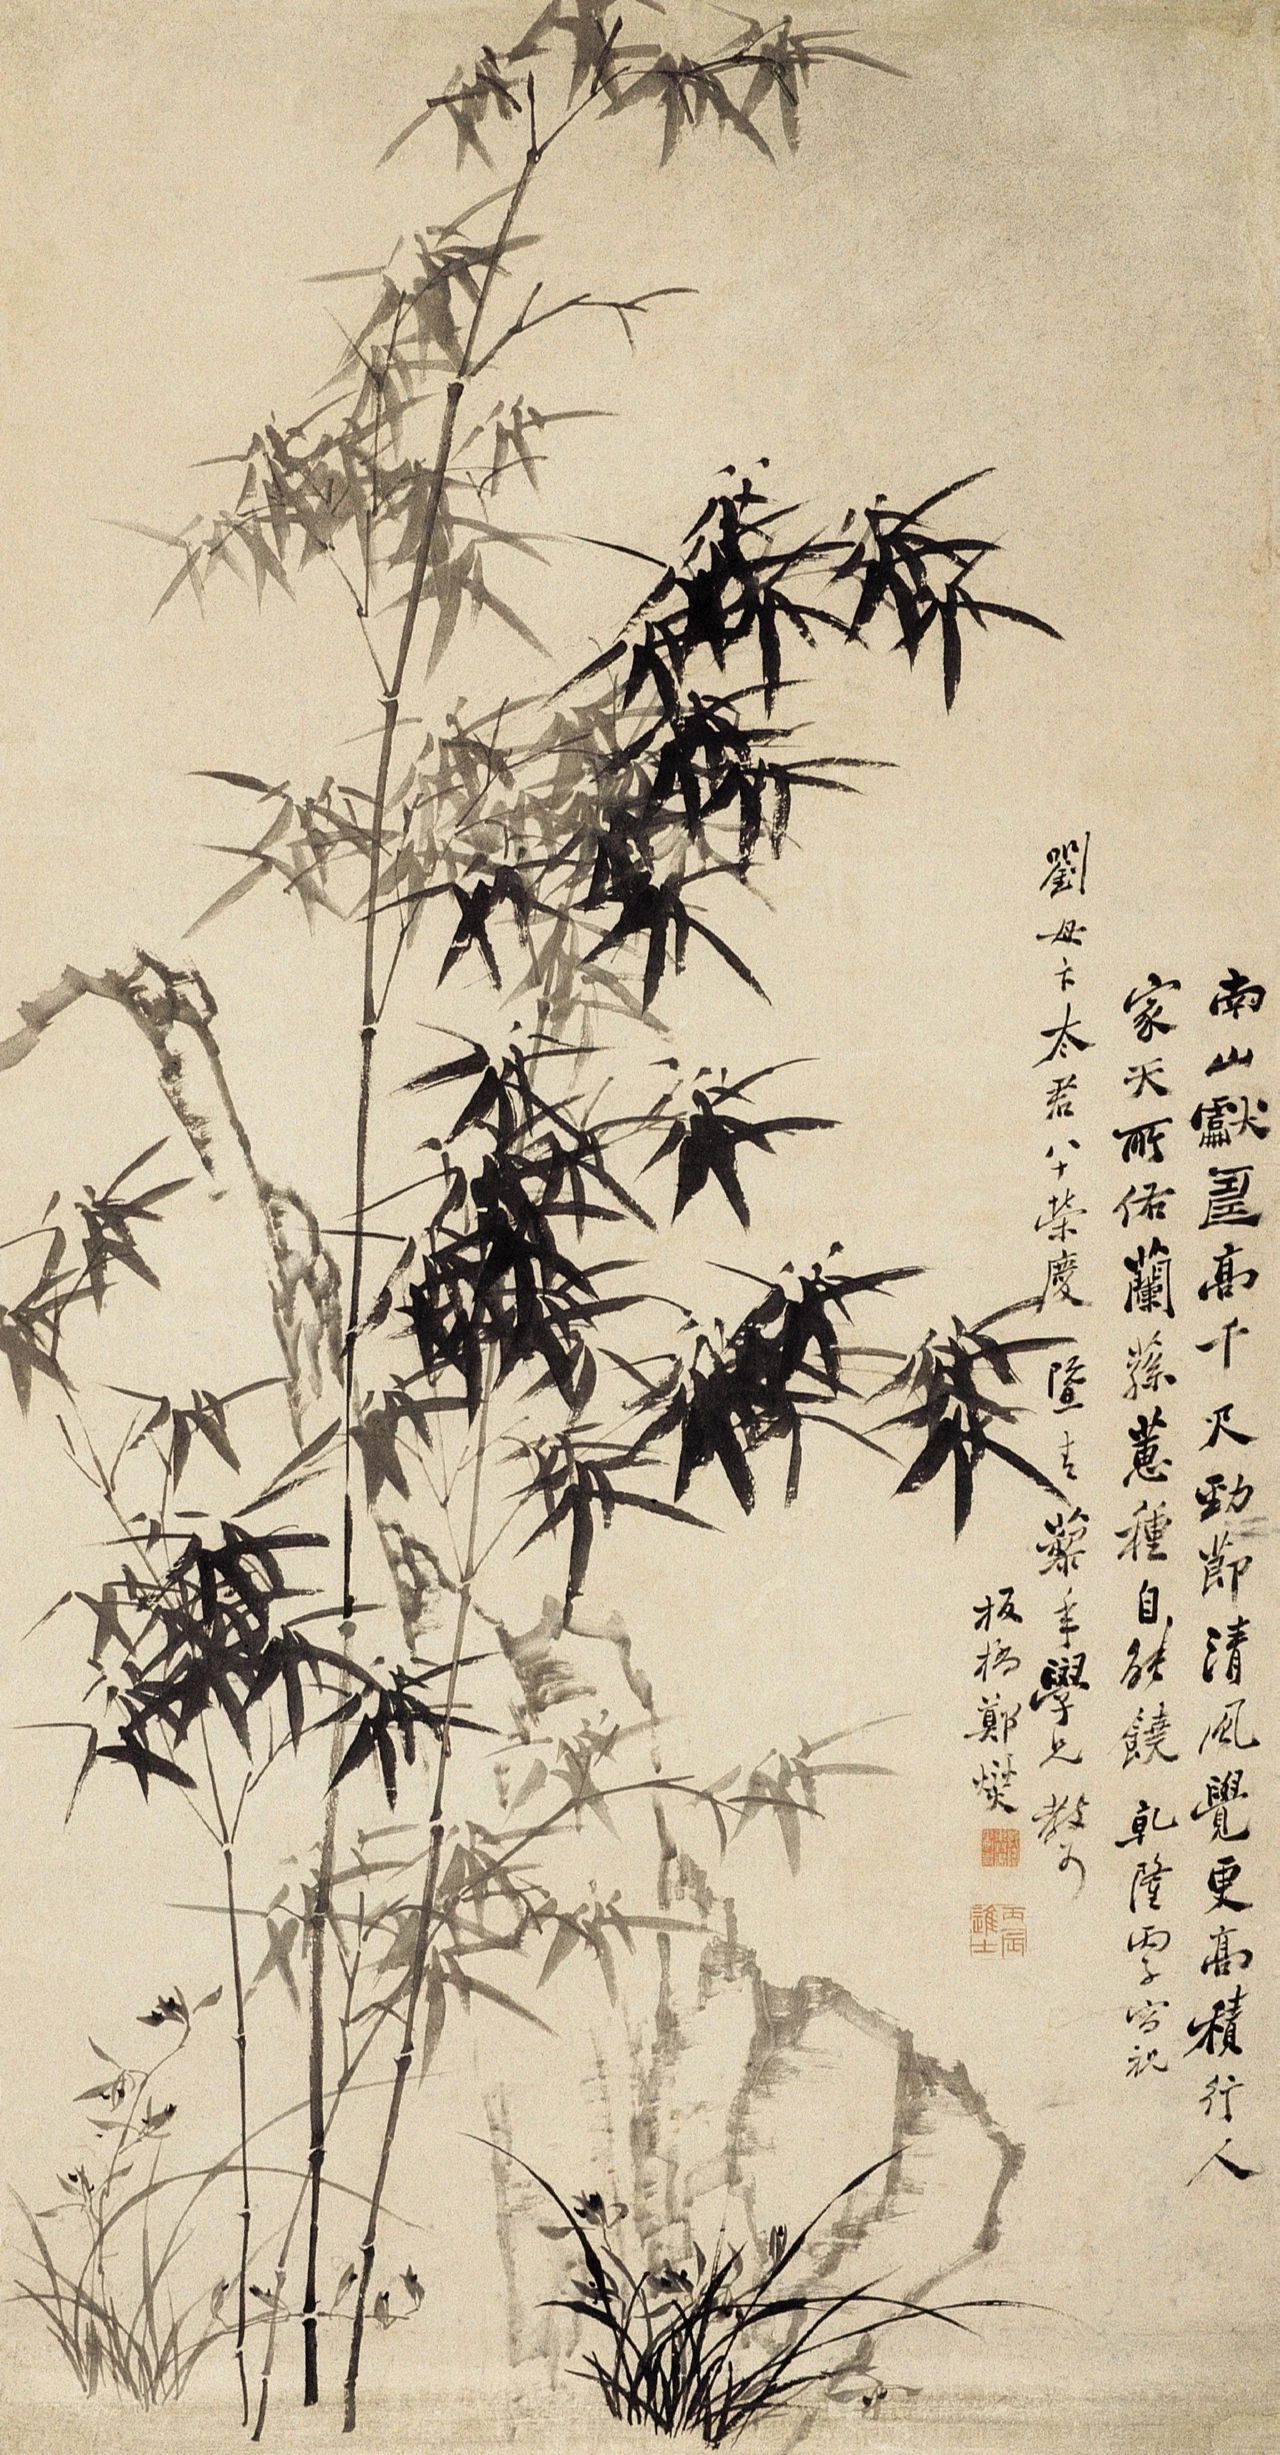 南山獻壽高千尺勁節清風覺更高積行人
家天所佑蘭蓀蕙種自能饒乾隆丙子寫祝
劉母卞太君八十榮慶暨 青藜年學兄教可
板橋鄭燮
丙辰進士